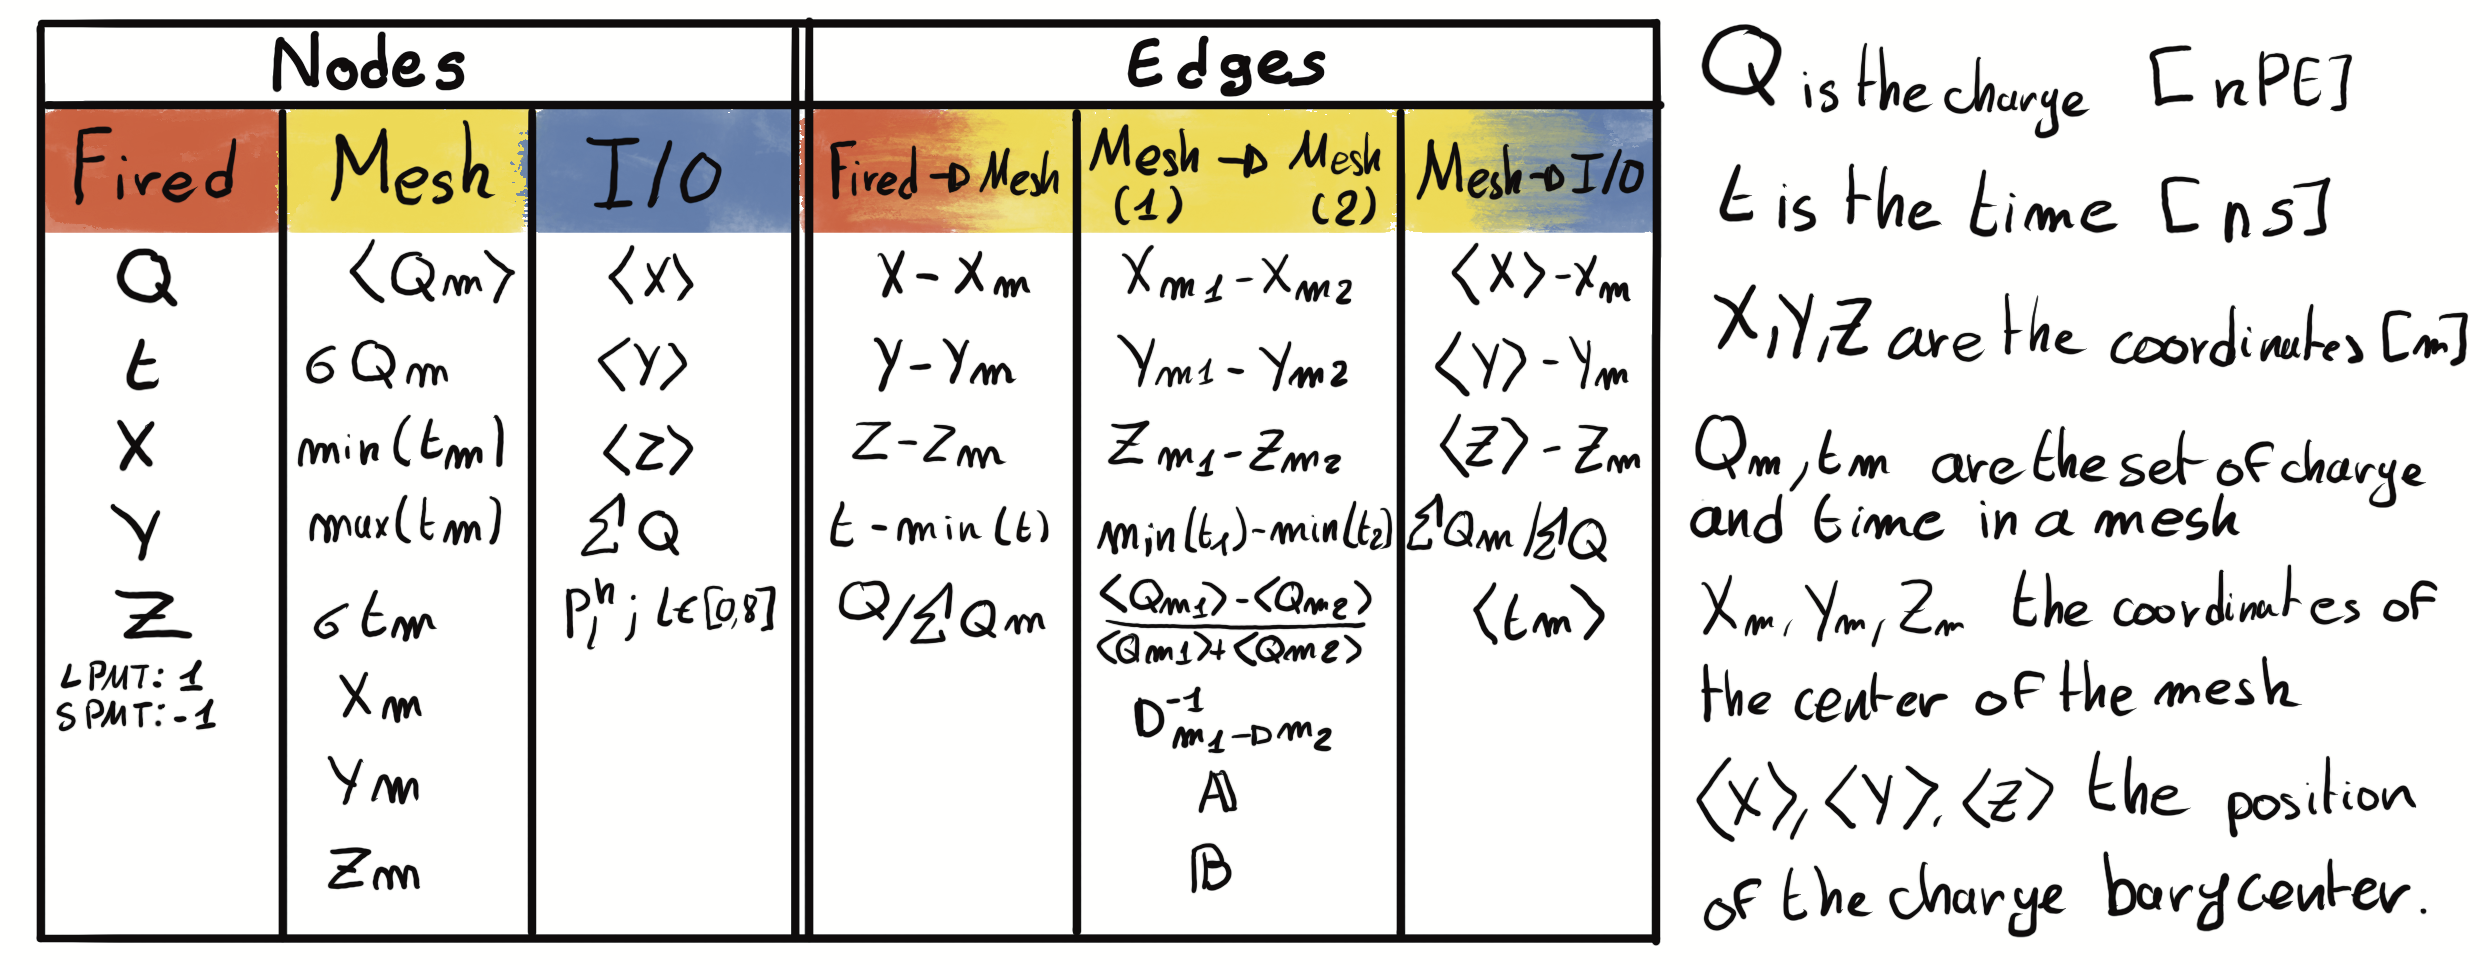 Nodes Edges
Fired Mesh I/O Fired → Mesh Mesh (1) → Mesh (2) Mesh → I/O
Q ⟨Qm⟩ ⟨X⟩ X - Xm Xm1 - Xm2 ⟨X⟩ - Xm
t σQm ⟨Y⟩ Y - Ym Ym1 - Ym2 ⟨Y⟩ - Ym
X min(tm) ⟨Z⟩ Z - Zm Zm1 - Zm2 ⟨Z⟩ - Zm
Y max(tm) ΣQ t - min(t) min(t1) - min(t2) ΣQm/ΣQ
Z σtm P_l^h ; l∈[0,8] Q/ΣQm (⟨Qm1⟩ - ⟨Qm2⟩)/(⟨Qm1⟩ + ⟨Qm2⟩) ⟨tm⟩
LPMT: 1 Xm D^-1 m1→m2
SPMT: -1
Ym 𝔸
Zm 𝔹
Q is the charge [nPE]
t is the time [ns]
X, Y, Z are the coordinates [m]
Qm, tm are the set of charge
and time in a mesh
Xm, Ym, Zm the coordinates of
the center of the mesh
⟨X⟩, ⟨Y⟩, ⟨Z⟩ the position
of the charge barycenter.